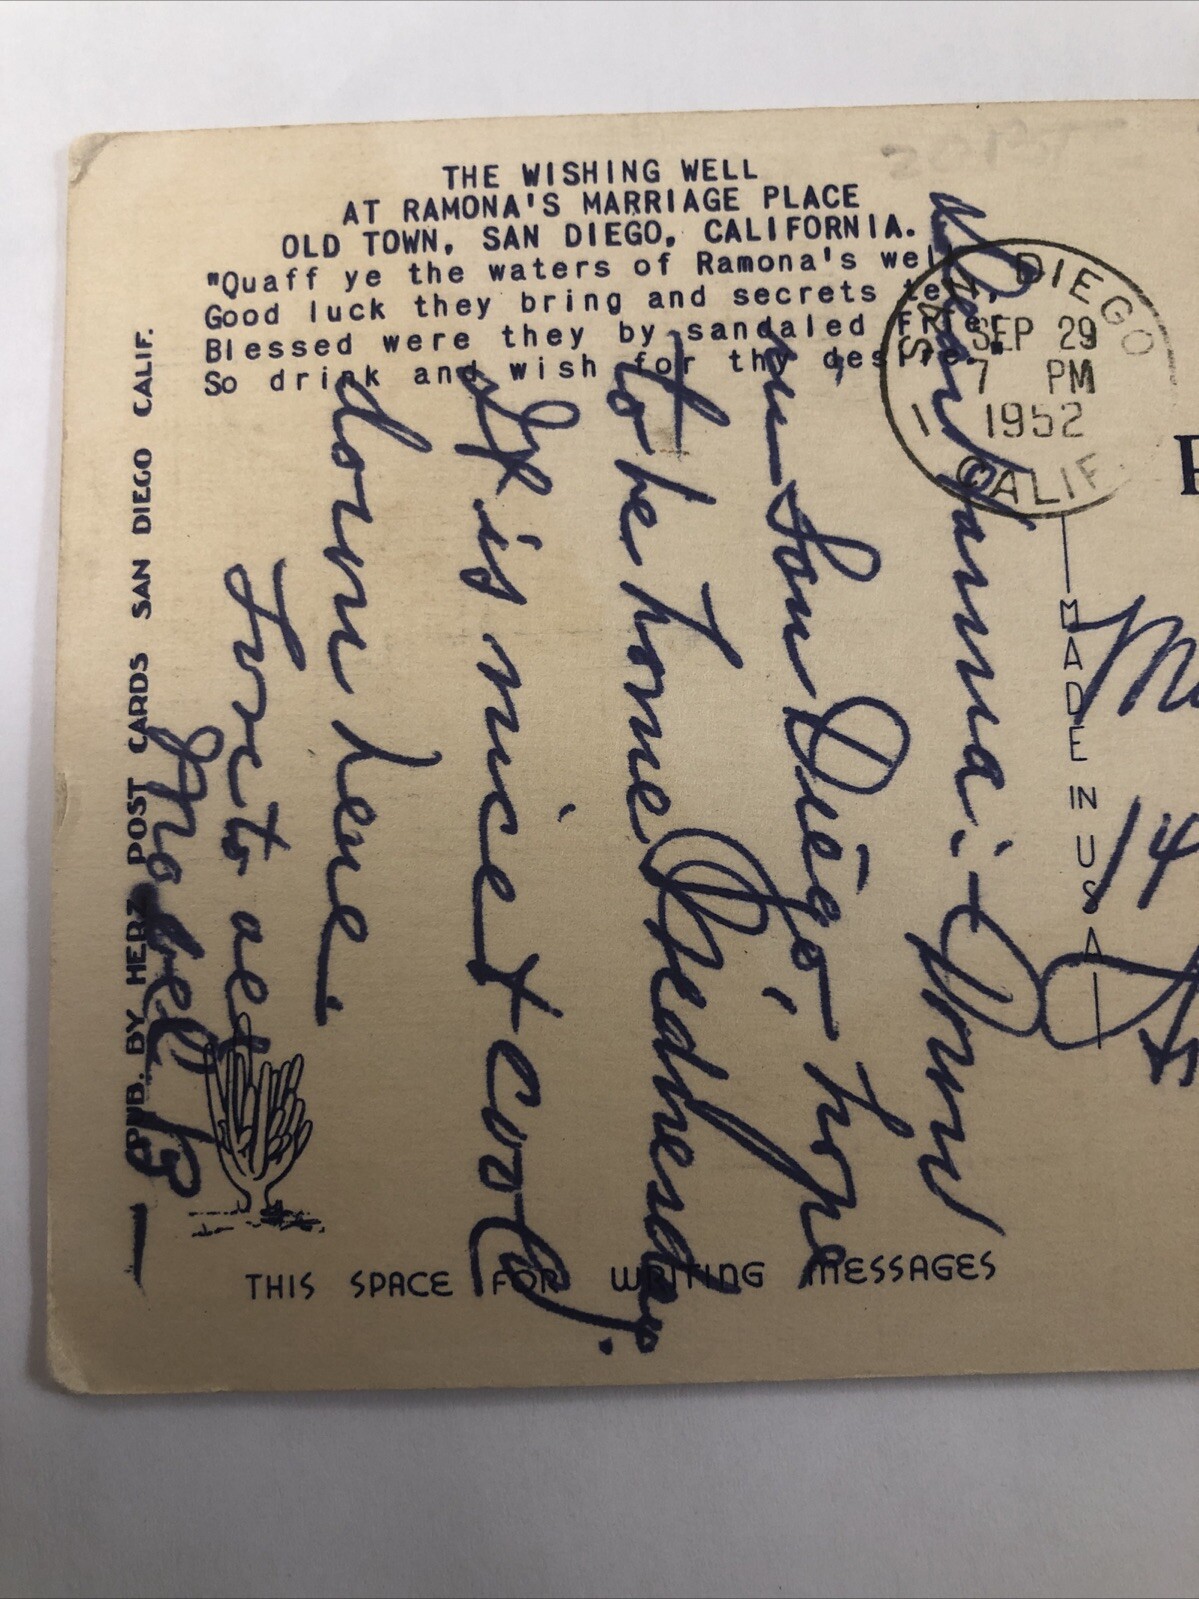 THE WISHING WELL
AT RAMONA'S MARRIAGE PLACE
OLD TOWN, SAN DIEGO, CALIFORNIA.
"Quaff ye the waters of Ramona's well,
Good luck they bring and secrets tell,
Blessed were they by sandaled Friar,
So drink and wish for thy desire."
SAN DIEGO
SEP 29
7 PM
1952
CALIF.
1
Dear Anna:- Down
in San Diego, hope
to be home Wednesday.
It is nice & cool
down here.
Love to all
Mabel B
PUB. BY HERZ POST CARDS SAN DIEGO CALIF.
THIS SPACE FOR WRITING MESSAGES
MADE IN USA
14